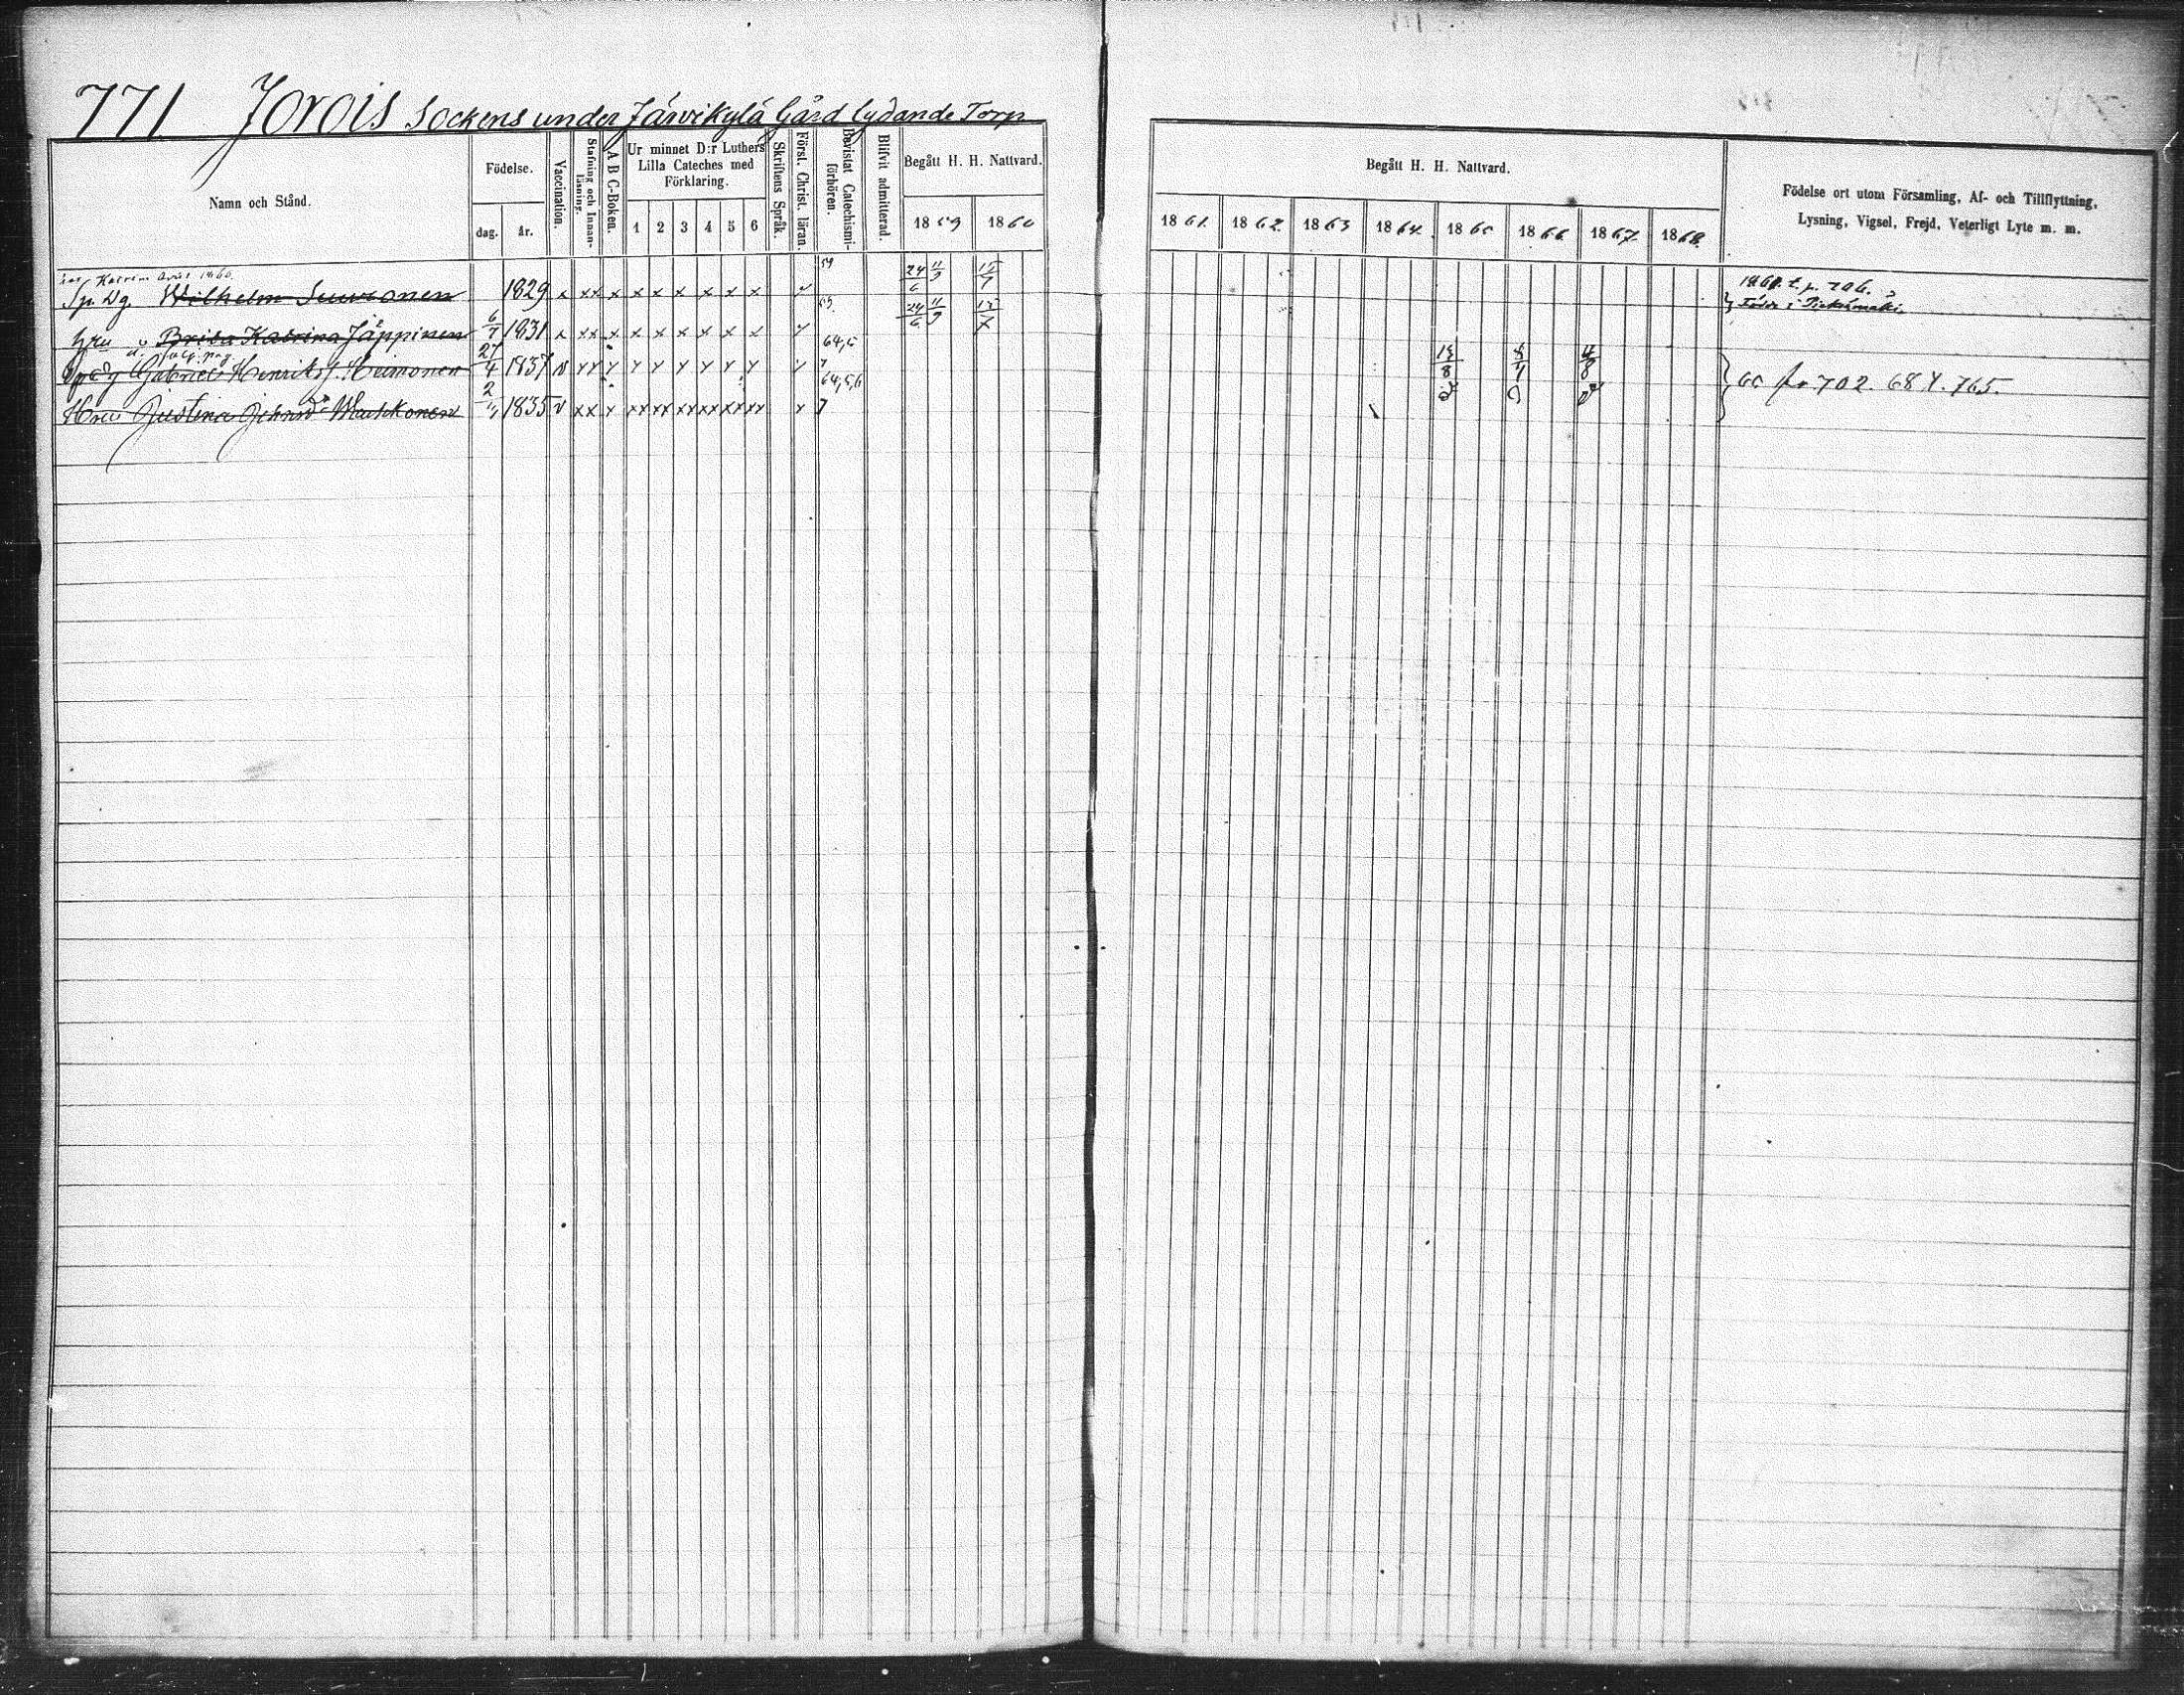 771 Jorois Sockens under Järvikylä Gård lydande Torp
Namn och Stånd.
Födelse.
dag. år.
Vaccination.
Stafning och Innanläsning.
A B C-Boken.
Ur minnet D:r Luthers
Lilla Cateches med
Förklaring.
1 2 3 4 5 6
Skriftens Språk.
Först. Christ. läran.
Bevistat Catechismi-förhören.
Blifvit admitterad.
Begått H. H. Nattvard.
1859 1860
Begått H. H. Nattvard.
1861. 1862. 1863 1864. 1865 1866. 1867. 1868.
Födelse ort utom Församling, Af- och Tillflyttning,
Lysning, Vigsel, Frejd, Veterligt Lyte m. m.
Sp. Dg. Wilhelm Suuronen 1829 x xx x x x x x x x 59 24/6 11/9 15/7
hru Brita Katrina Jäppinen 6/7 1831 x xx x x x x x x x 59. 24/6 11/9 15/7
Gabriel Henriksf. Heimonen 27/4 1837 64,5 13/8 4/8
Hru Justina Johansd:r Maukonen 1835 v xx x xx xx xx xx xx xx x 64,5,6
1861. t. p. 206.
Född i Pieksämäki
65 fr 702. 68 t. 765.